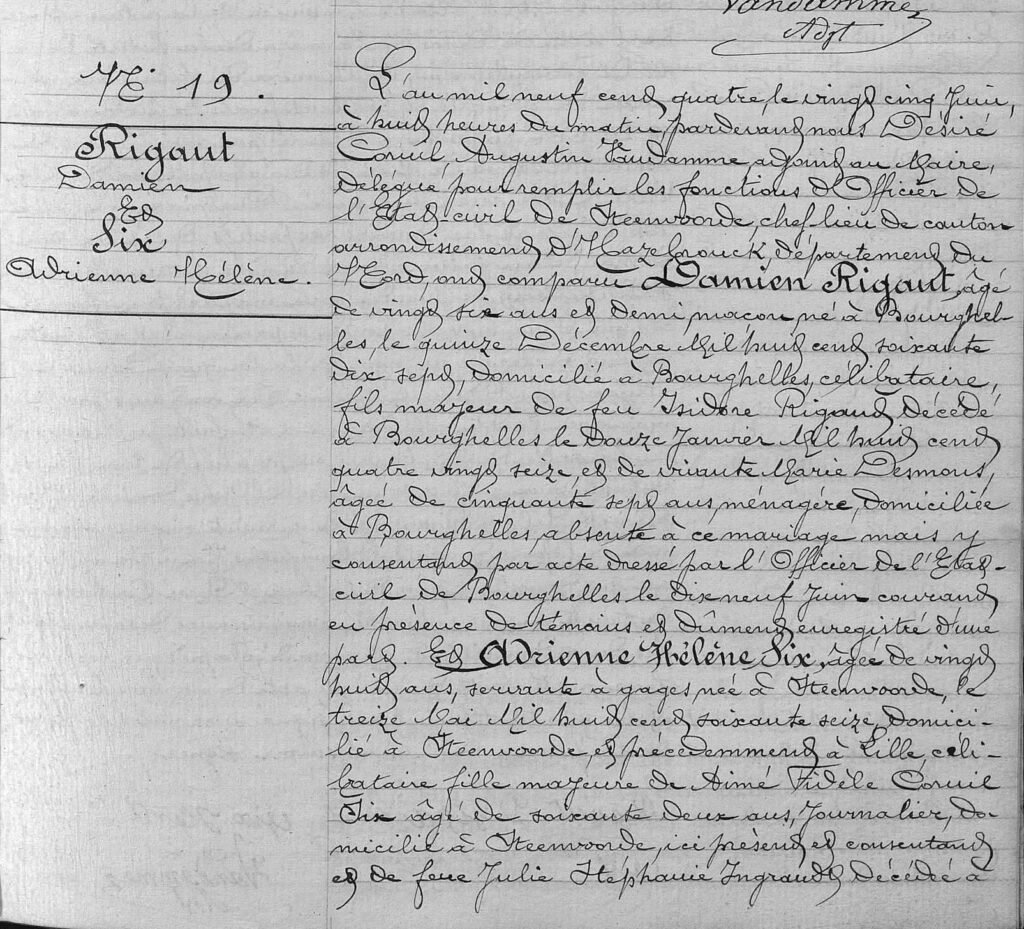 Vandamme
Adjt
N° 19.
Rigaut
Damien
Et
Six
Adrienne Hélène.
L'an mil neuf cent quatre, le vingt cinq Juin,
à huit heures du matin pardevant nous Désiré
Cornil Augustin Vandamme adjoint au Maire,
délégué pour remplir les fonctions d'Officier de
l'Etat-civil de Steenvoorde, chef lieu de canton
arrondissement d'Hazebrouck, département du
Nord, ont comparu Damien Rigaut, âgé
de vingt six ans et demi, maçon, né à Bourghel-
les, le quinze Décembre Mil huit cent soixante
dix sept, domicilié à Bourghelles, célibataire,
fils majeur de feu Isidore Rigaut décédé
à Bourghelles le douze Janvier Mil huit cent
quatre vingt seize, et de vivante Marie Desmons,
âgée de cinquante sept ans, ménagère, domiciliée
à Bourghelles, absente à ce mariage mais y
consentant par acte dressé par l'Officier de l'Etat-
civil de Bourghelles le dix neuf Juin courant
en présence de témoins et dûment enregistré d'une
part. Et Adrienne Hélène Six, âgée de vingt
huit ans, servante à gages, née à Steenvoorde, le
treize Mai Mil huit cent soixante seize, domici-
lié à Steenvoorde, et précédemment à Lille, céli-
bataire fille majeure de Aimé Fidèle Cornil
Six âgé de soixante deux ans, Journalier, do-
micilié à Steenvoorde, ici présent et consentant
et de feue Julie Stéphanie Ingrandt décédée à